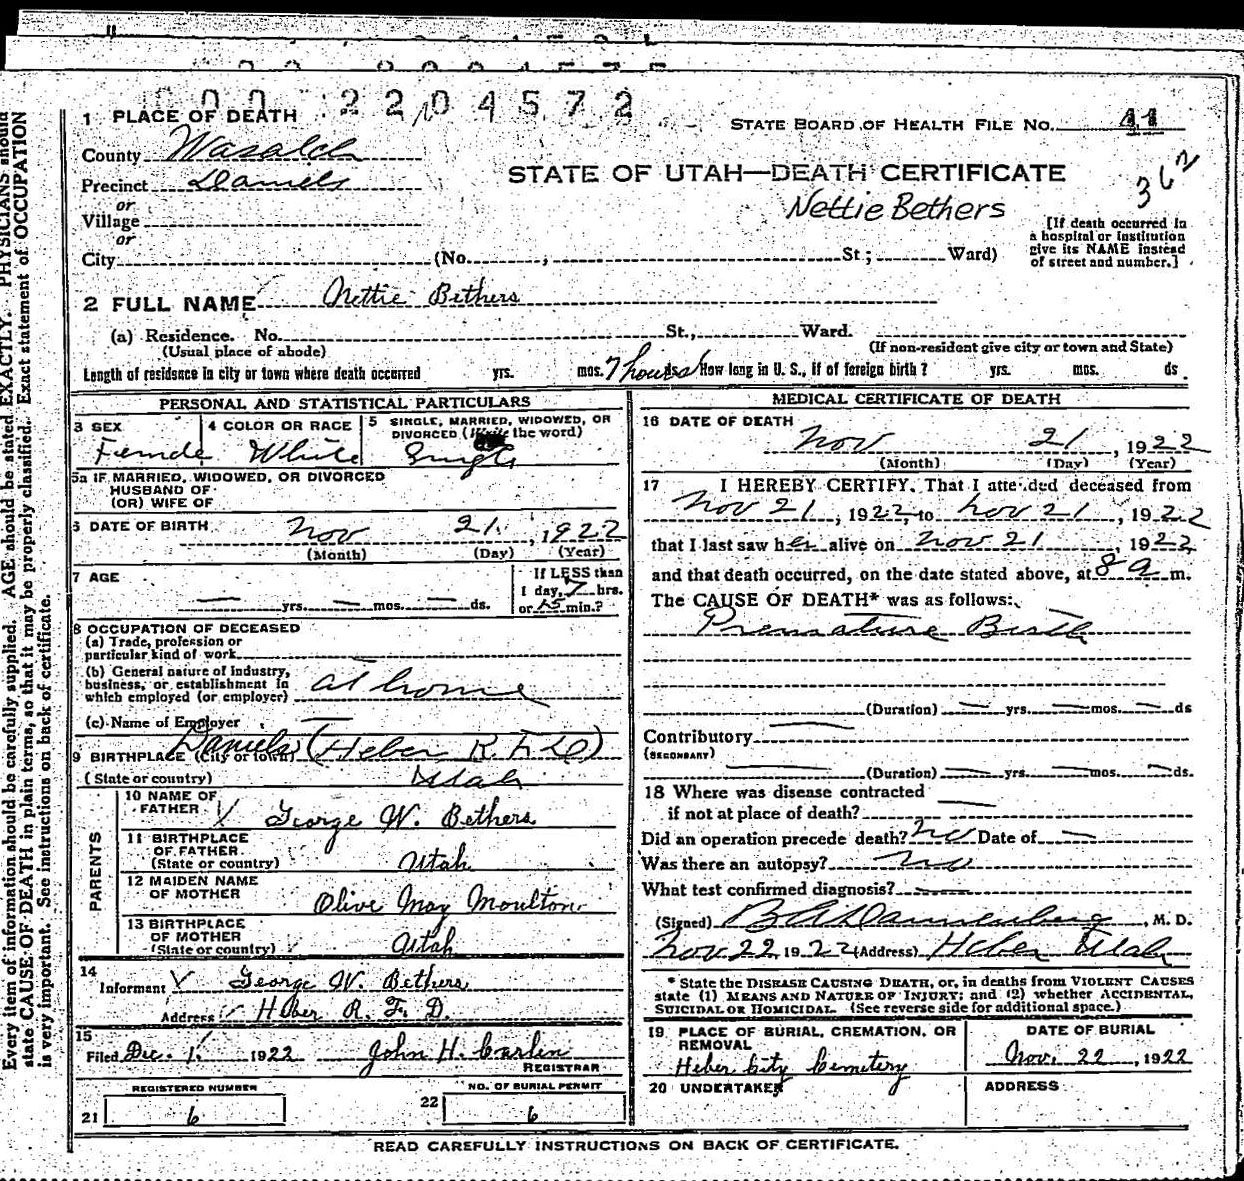 00 2204572
1 PLACE OF DEATH
STATE BOARD OF HEALTH FILE No. 44
County Wasatch
STATE OF UTAH—DEATH CERTIFICATE
362
Precinct Daniels
Nettie Bethers
or
Village
or
[If death occurred in
a hospital or institution
give its NAME instead
of street and number.]
City (No. , St; Ward)
2 FULL NAME Nettie Bethers
(a) Residence. No. St., Ward.
(Usual place of abode) (If non-resident give city or town and State)
Length of residence in city or town where death occurred yrs. mos. 7 hours How long in U. S., if of foreign birth? yrs. mos. ds.
PERSONAL AND STATISTICAL PARTICULARS
3 SEX 4 COLOR OR RACE 5 SINGLE, MARRIED, WIDOWED, OR
DIVORCED (Write the word)
Female White Single
5a IF MARRIED, WIDOWED, OR DIVORCED
HUSBAND OF
(OR) WIFE OF
6 DATE OF BIRTH Nov 21, 1922
(Month) (Day) (Year)
7 AGE If LESS than
— yrs. — mos. — ds. 1 day, 7 hrs.
or 15 min.?
8 OCCUPATION OF DECEASED
(a) Trade, profession or
particular kind of work
(b) General nature of industry,
business, or establishment in
which employed (or employer) at home
(c) Name of Employer —
9 BIRTHPLACE (City or town) Daniels (Heber R.F.D)
(State or country) Utah
PARENTS
10 NAME OF
FATHER George W. Bethers
11 BIRTHPLACE
OF FATHER
(State or country) Utah
12 MAIDEN NAME
OF MOTHER Olive May Moulton
13 BIRTHPLACE
OF MOTHER
(State or country) Utah
14
Informant George W. Bethers
Address Heber R. F. D.
15
Filed Dec. 1, 1922 John H. Carlin
REGISTRAR
REGISTERED NUMBER NO. OF BURIAL PERMIT
21 6 22 6
MEDICAL CERTIFICATE OF DEATH
16 DATE OF DEATH
Nov 21, 1922
(Month) (Day) (Year)
17 I HEREBY CERTIFY, That I attended deceased from
Nov 21, 1922, to Nov 21, 1922
that I last saw her alive on Nov 21, 1922
and that death occurred, on the date stated above, at 8 a m.
The CAUSE OF DEATH* was as follows:
Premature Birth
(Duration) — yrs. — mos. — ds
Contributory —
(SECONDARY)
— (Duration) — yrs. — mos. — ds.
18 Where was disease contracted
if not at place of death? —
Did an operation precede death? No Date of —
Was there an autopsy? No
What test confirmed diagnosis? —
(Signed) B A Dannenberg, M. D.
Nov 22 1922 (Address) Heber Utah
* State the DISEASE CAUSING DEATH, or, in deaths from VIOLENT CAUSES
state (1) MEANS AND NATURE OF INJURY; and (2) whether ACCIDENTAL,
SUICIDAL OR HOMICIDAL. (See reverse side for additional space.)
19 PLACE OF BURIAL, CREMATION, OR
REMOVAL
Heber City Cemetery
DATE OF BURIAL
Nov. 22, 1922
20 UNDERTAKER
ADDRESS
READ CAREFULLY INSTRUCTIONS ON BACK OF CERTIFICATE.
Every item of information should be carefully supplied. AGE should be stated EXACTLY. PHYSICIANS should
state CAUSE OF DEATH in plain terms, so that it may be properly classified. Exact statement of OCCUPATION
is very important. See instructions on back of certificate.